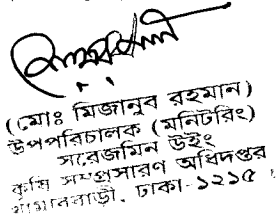 (মোঃ মিজানুর রহমান)
উপপরিচালক (মনিটরিং)
সরেজমিন উইং
কৃষি সম্প্রসারণ অধিদপ্তর
খামারবাড়ী, ঢাকা-১২১৫ ।